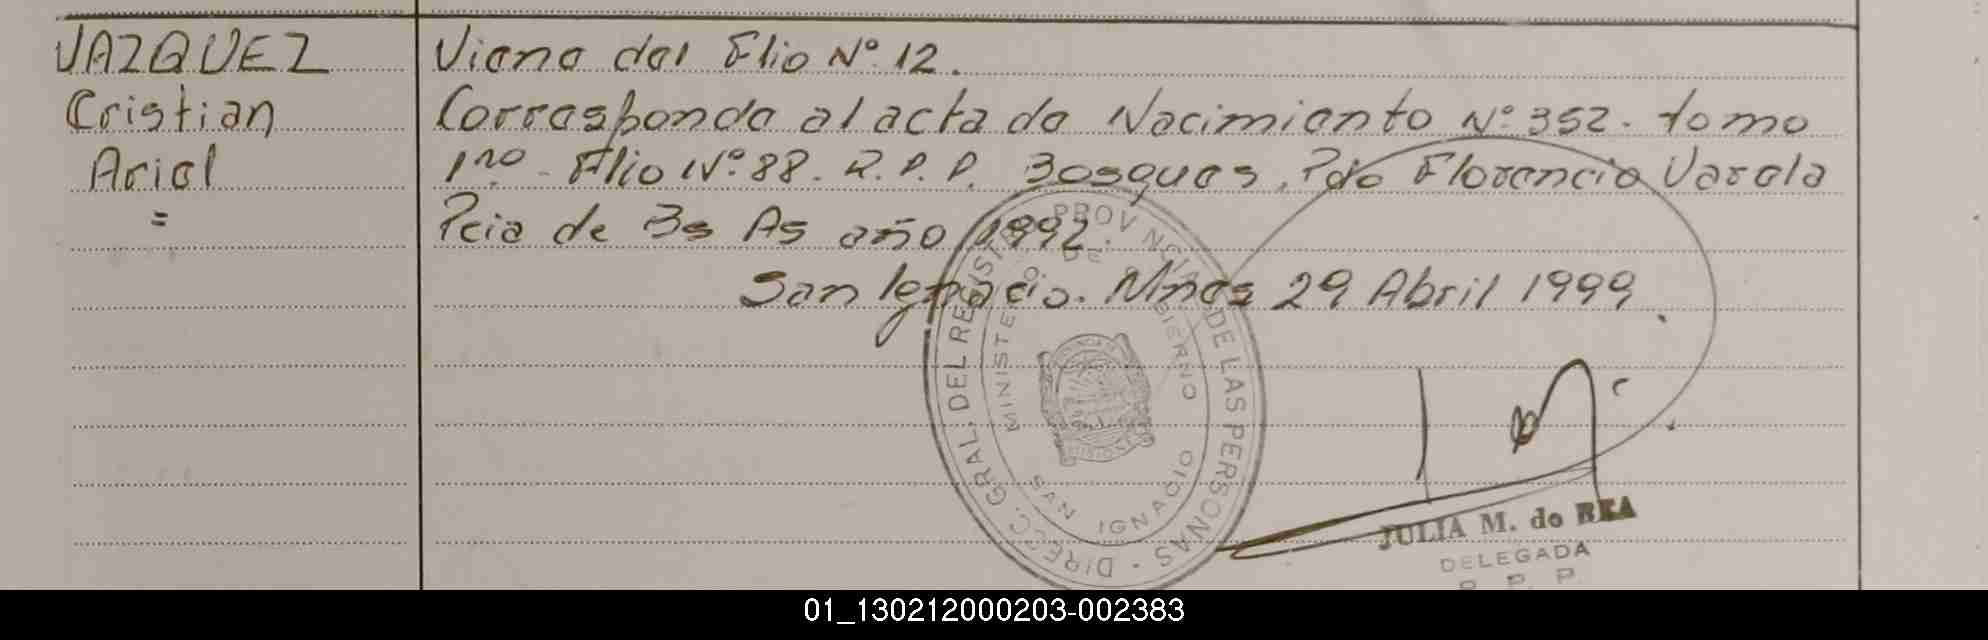 VAZQUEZ
Cristian
Ariel
=
Viene del Flio Nº 12.
Corresponde al acta de Nacimiento Nº 352. tomo
1ro - Flio Nº 88. R.P.P. Bosques, Pdo Florencio Varela
Pcia de Bs As año 1992.
San Ignacio. Mnes 29 Abril 1999.
DIRECC. GRAL. DEL REG. DE LAS PERSONAS
PROVINCIA DE MISIONES
MINISTERIO DE GOBIERNO
SAN IGNACIO
JULIA M. de REA
DELEGADA
R. P. P
01_130212000203-002383